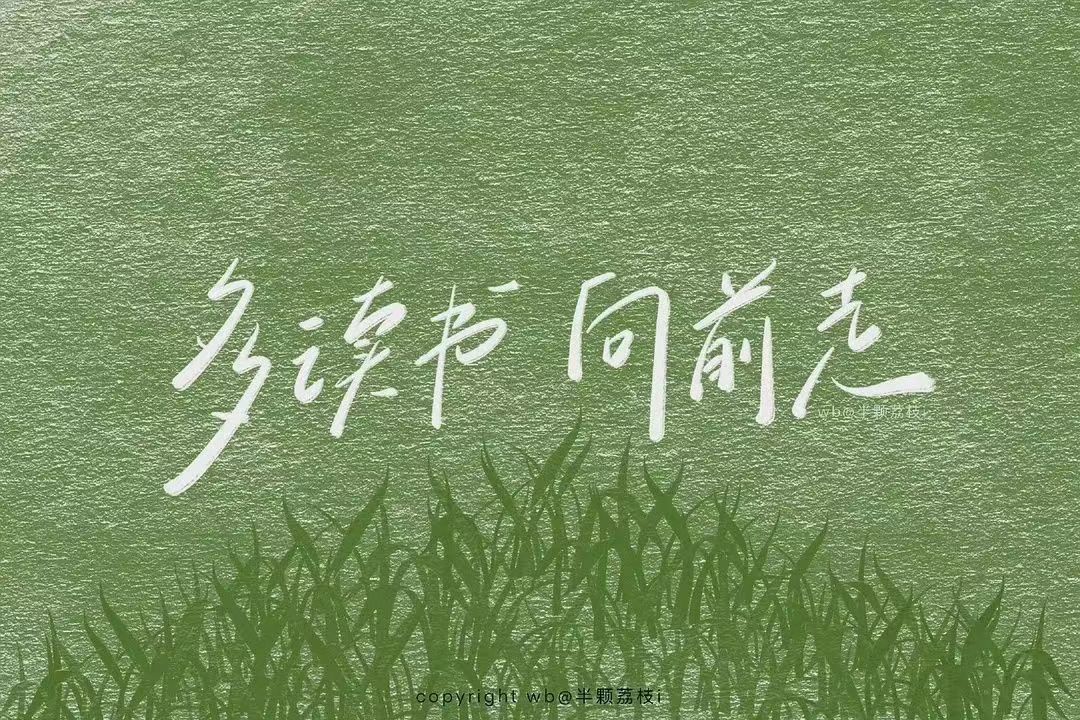 多读书 向前走
wb@半颗荔枝i
copyright wb@半颗荔枝i